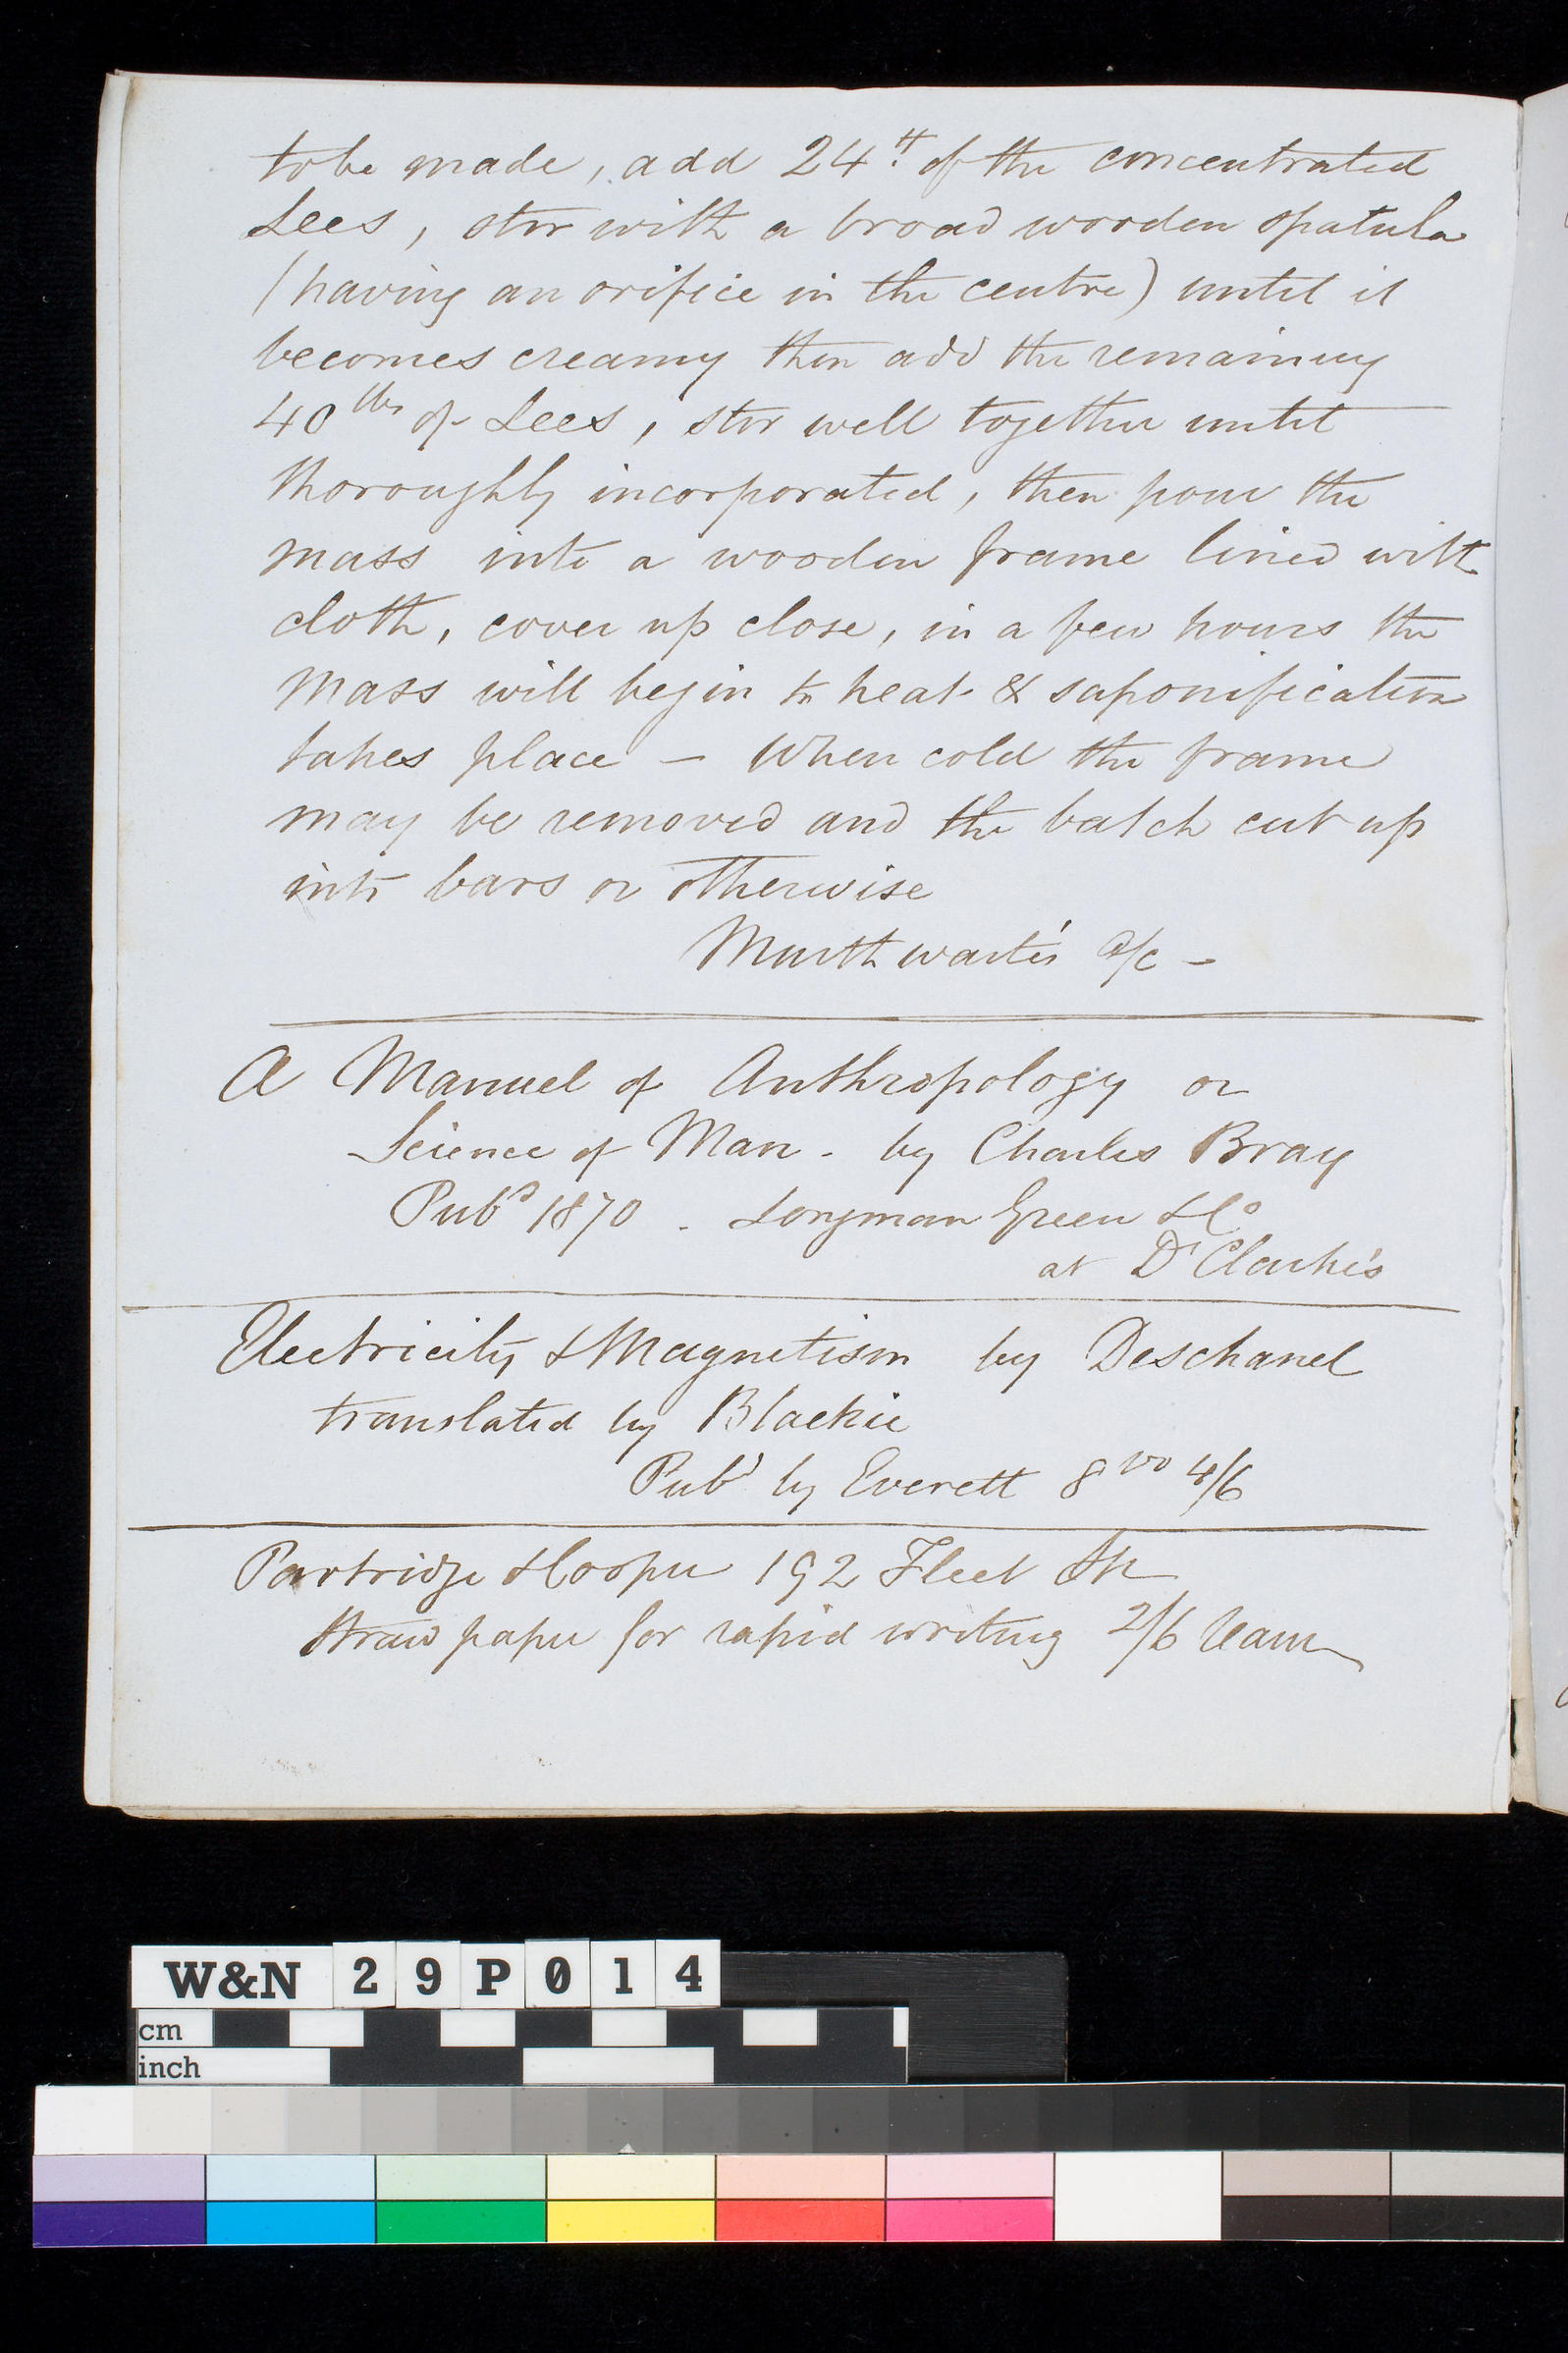 to be made, add 24 lb of the concentrated
Lees, stir with a broad wooden spatula
(having an orifice in the centre) until it
becomes creamy then add the remaining
40 lbs of Lees, stir well together until
thoroughly incorporated, then pour the
mass into a wooden frame lined with
cloth, cover up close, in a few hours the
mass will begin to heat & saponification
takes place – When cold the frame
may be removed and the batch cut up
into bars or otherwise
Murthwaite's a/c –
A Manuel of Anthropology or
Science of Man - by Charles Bray
Pubd 1870 - Longman Green & Co
at Dr Clarke's
Electricity & Magnetism by Deschanel
translated by Blackie
Pubd by Everett 8vo 4/6
Partridge & Cooper 192 Fleet Str
Straw paper for rapid writing 2/6 Ream
W&N 29P014
cm
inch